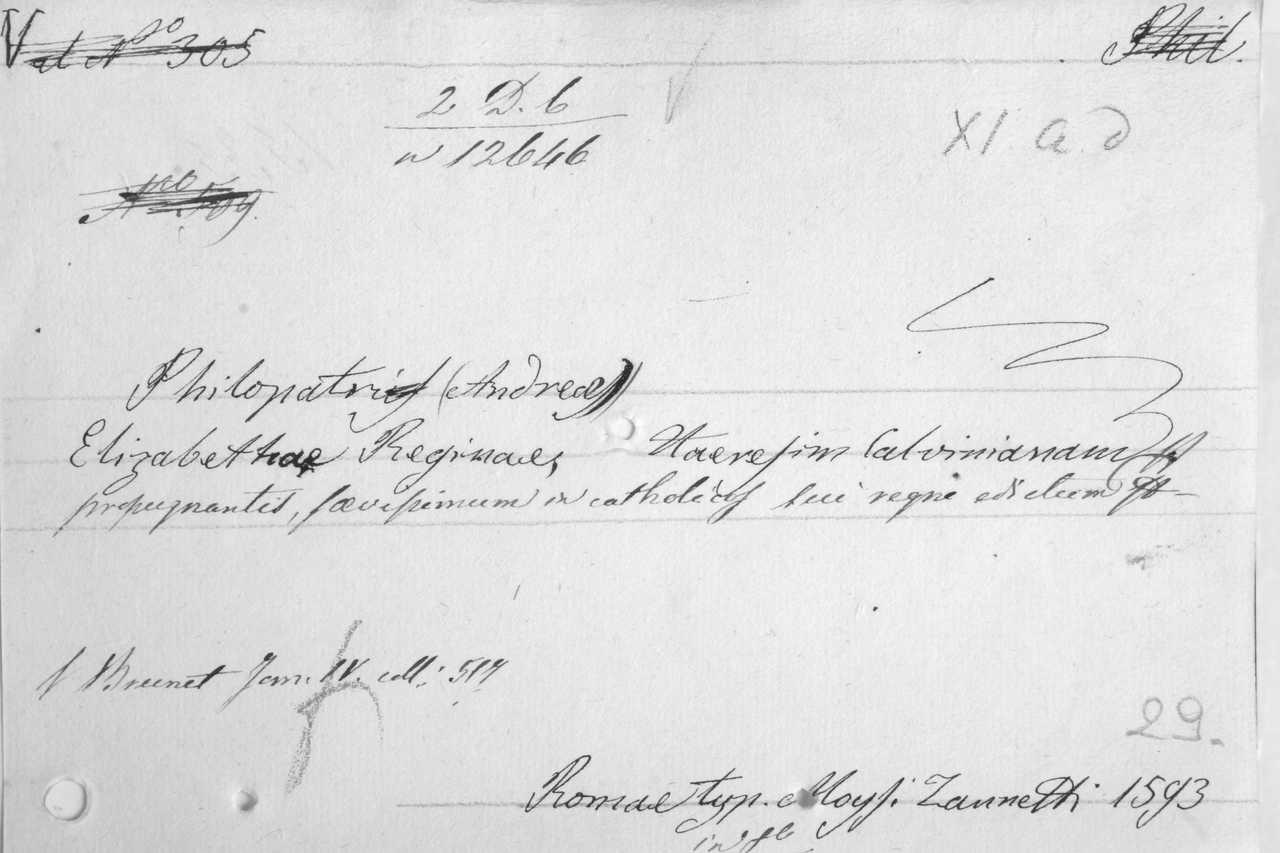 Vet Nro 305
Phil.
2 D. 6
n 12646
XI. a. d
Nro 509.
Philopatris (Andreas)
Elizabethae Reginae, Haeresim Calvinianam
propugnantis, sævissimum in catholicos sui regni edictum
V Brunet Tom. IV. coll: 517
29.
Romae typ. Aloysi Zannetti 1593
in 8o